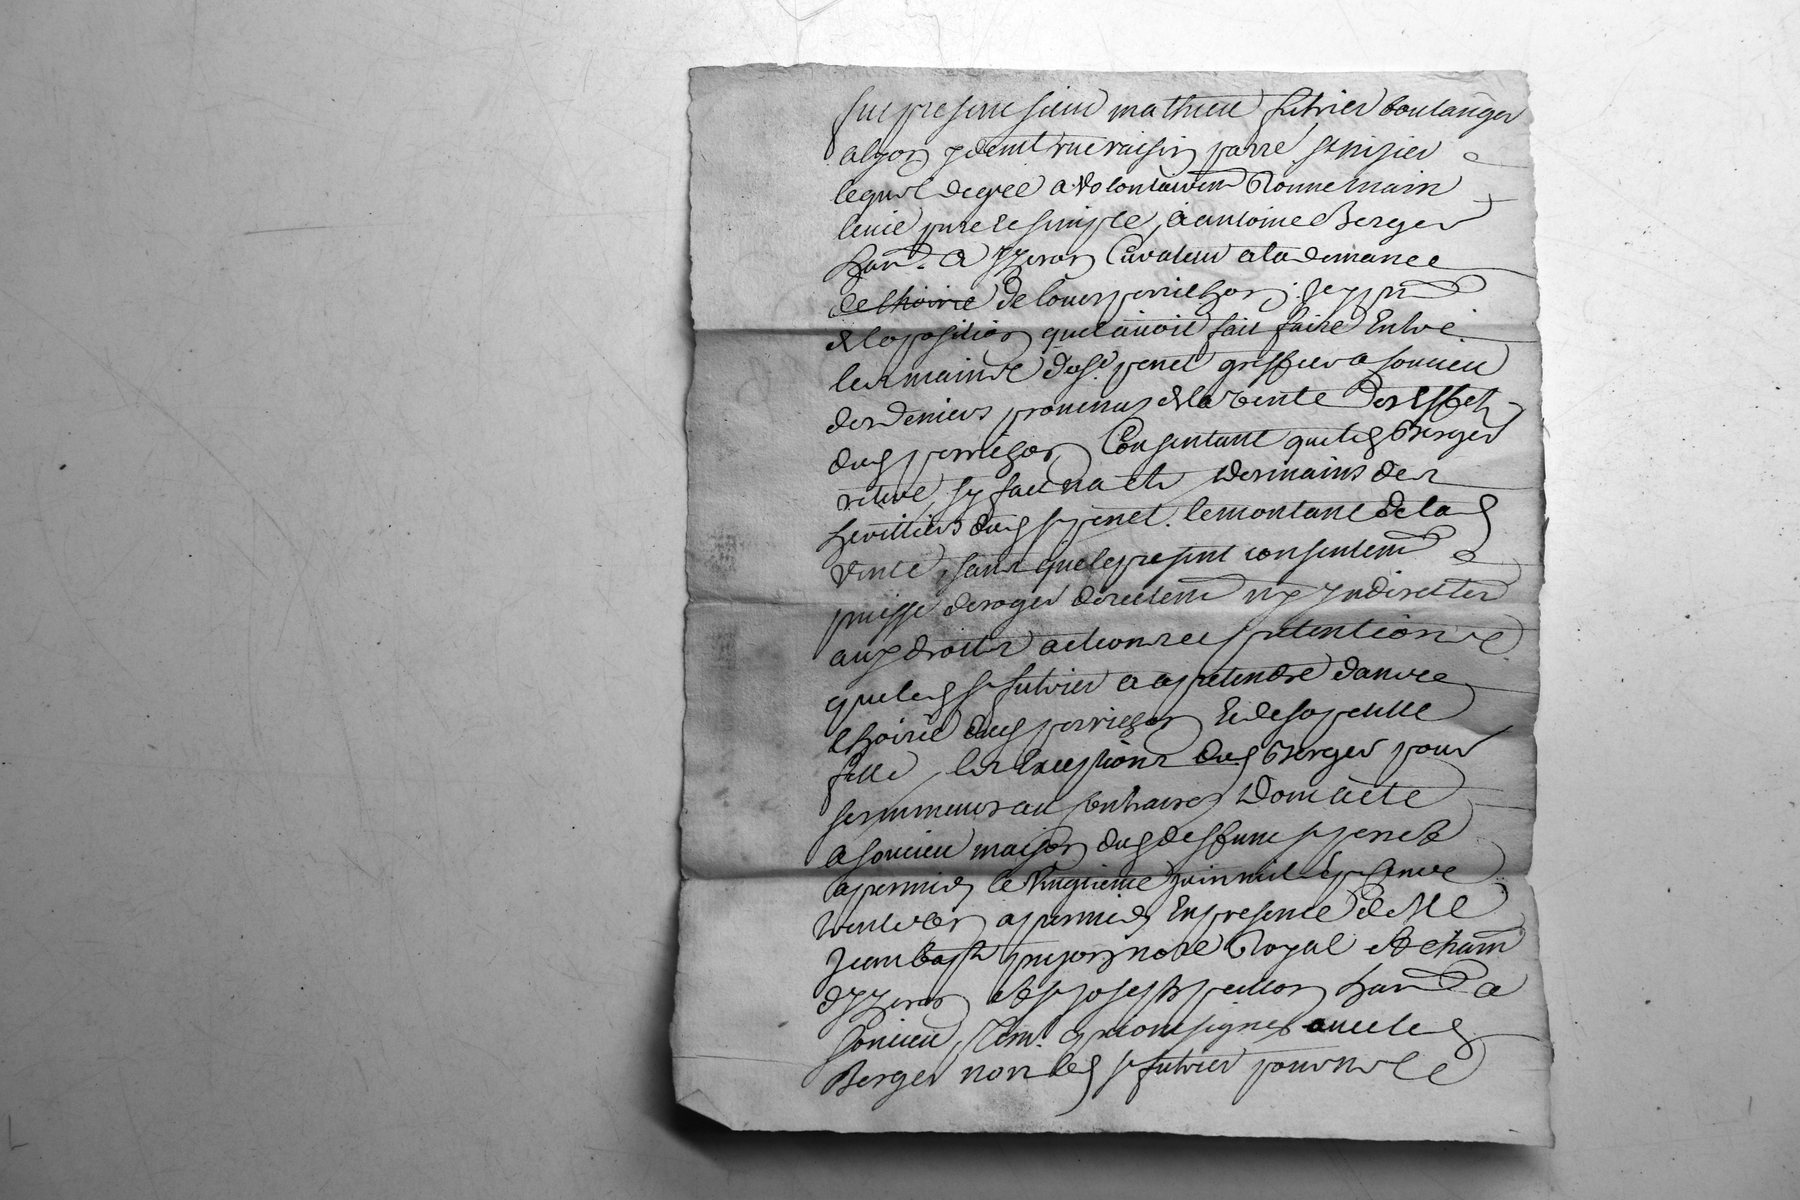 fut present sieur mathieu futrier boulanger
a lyon y demt rue raisin parre st nizier
lequel de gré a volontairem donne main
levée pure et simple, a antoine Berger
habt. a yzeron Curateur a la demance
de l'hoirie de louis perrichon
de loposition quil avoit fait faire Entre
les mains de du sr penet greffier a soucieu
des deniers provenus de la vente des Effets
dud perrichon Consentant que led Berger
retire des mains des
heritiers dud sr penet. le montant de lad
vente, sans que le present consentem
puisse deroger directem ny Indirectem
aux droits actions et pretentions
que led sr futrier a a pretendre dans
lhoirie dud perrichon Et de sa petitte
fille, les Exceptions dud Berger pour
au contraires Dont acte
a soucieu maison dud deffunt sr penet
apremidy le Vingtieme juin mil sept Cent
trente apremidy En presence de Me
Jean bapt pujon nore Royal et Cham
d'yzeron et de sr joseph peillon habt a
soucieu, tem. qui ont signes avec led
Berger non led sr futrier pour ne